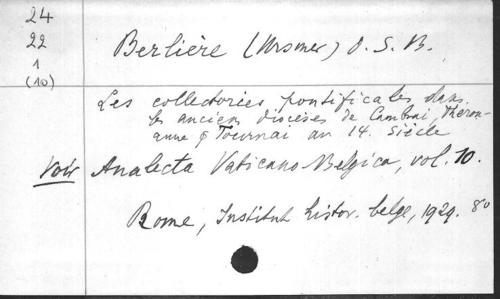 24
22
1
(10)
Berlière (Ursmer) O. S. B.
Les collectories pontificales dans
les anciens diocèses de Cambrai, Thérou-
anne & Tournai au 14. Siècle
Voir Analecta Vaticano Belgica, vol. 10.
Rome, Institut histor. belge, 1929. 8º